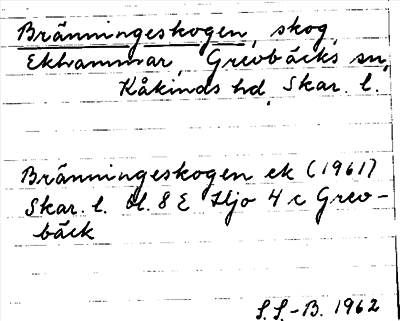 Bränningeskogen, skog,
Ekhammar, Grevbäcks sn,
Kåkinds hd, Skar. l.
Bränningeskogen ek (1961)
Skar. l. bl. 8 E Hjo 4 c Grev-
bäck
S.S.-B. 1962